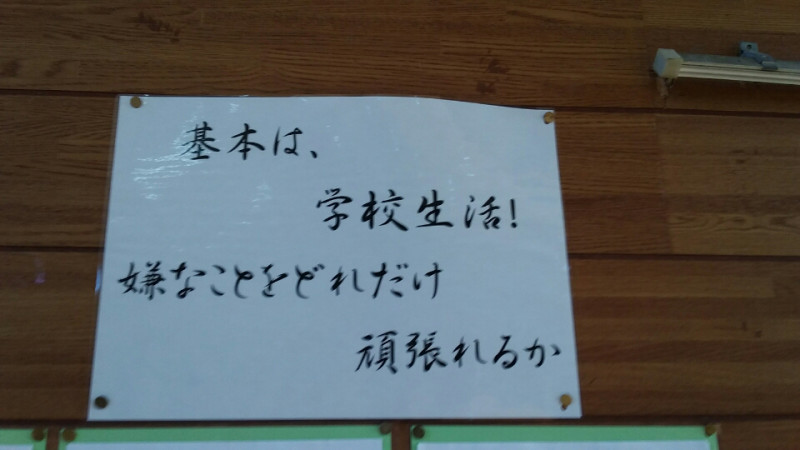 基本は、
学校生活!
嫌なことをどれだけ
頑張れるか